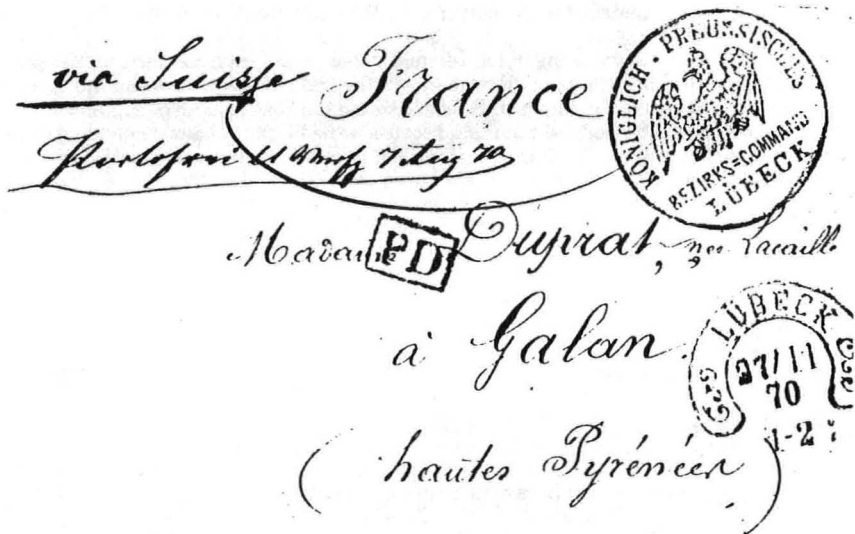 via Suisse France
Portofrei ll Verfg 7 Aug 70
KÖNIGLICH · PREUSSISCHES
BEZIRKS=COMMAND
LÜBECK
Madame Duprat, née Lacaille
PD
à Galan
LÜBECK
27/11
70
1-2
(hautes Pyrénées)